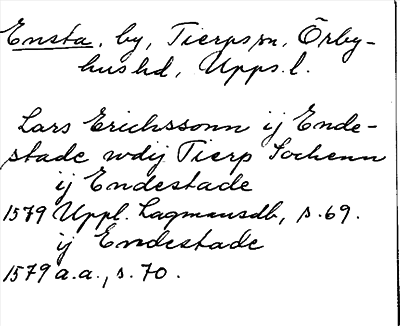 Ensta, by, Tierps sn, Örby-
hus hd, Upps. l.
Lars Erichssonn ij Ende-
stade wdij Tierp Sochenn
ij Endestade
1579 Uppl. Lagmansdb, s. 69.
ij Endestade
1579 a.a., s. 70.